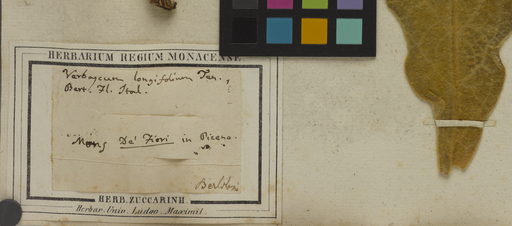 HERBARIUM REGIUM MONACENSE
Verbascum longifolium Ten.,
Bert. Fl. Ital.
Mons De' Fiori in Piceno.
HERB. ZUCCARINII.
Herbar. Univ. Ludov. Maximil.